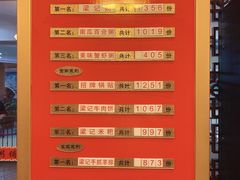 第一名: 梁记 共计 1356 份
第二名: 南瓜百合粥 共计 1019 份
第三名: 美味蟹虾粥 共计 405 份
第一名: 招牌锅贴 共计 1251 份
第二名: 梁记牛肉饼 共计 1067 份
第三名: 梁记米粑 共计 997 份
第一名: 梁记手抓羊排 共计 873 份